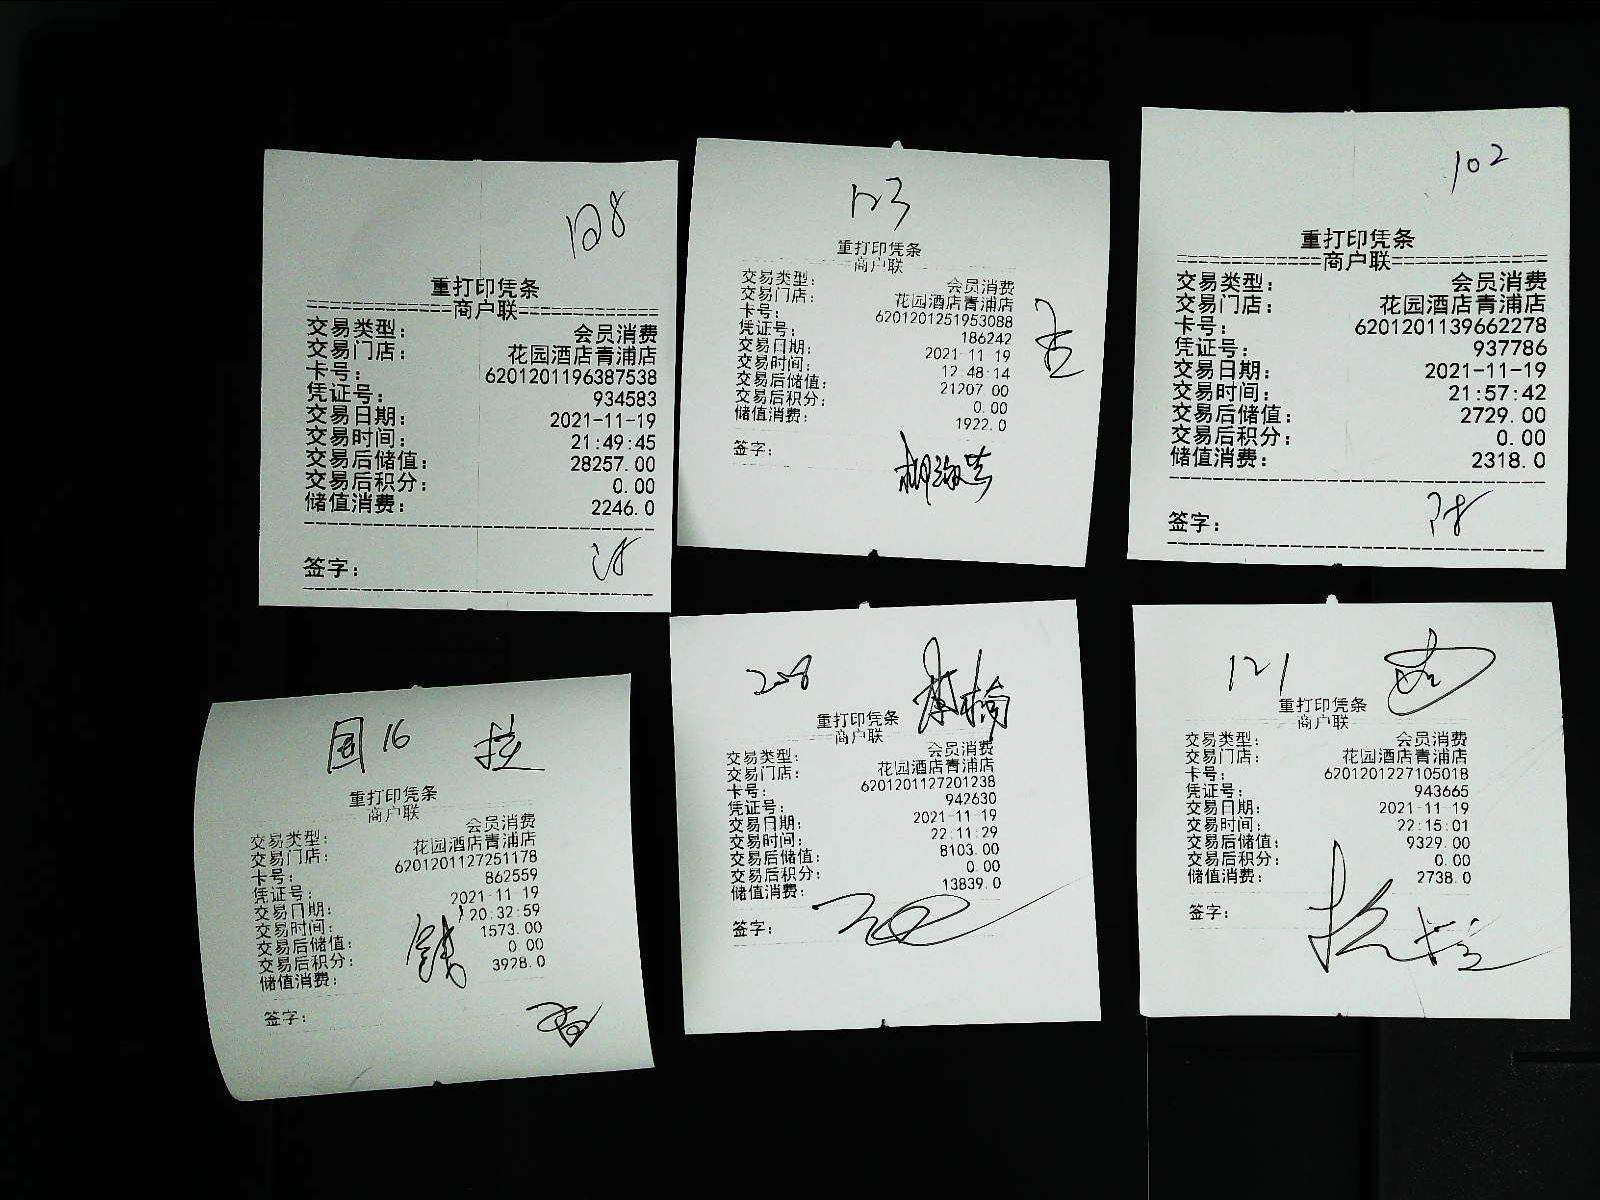 128
重打印凭条
============商户联============
交易类型: 会员消费
交易门店: 花园酒店青浦店
卡号: 6201201196387538
凭证号: 934583
交易日期: 2021-11-19
交易时间: 21:49:45
交易后储值: 28257.00
交易后积分: 0.00
储值消费: 2246.0
签字:
123
重打印凭条
商户联
交易类型: 会员消费
交易门店: 花园酒店青浦店
卡号: 6201201251953088
凭证号: 186242
交易日期: 2021-11-19
交易时间: 12:48:14
交易后储值: 21207.00
交易后积分: 0.00
储值消费: 1922.0
签字:
102
重打印凭条
============商户联============
交易类型: 会员消费
交易门店: 花园酒店青浦店
卡号: 6201201139662278
凭证号: 937786
交易日期: 2021-11-19
交易时间: 21:57:42
交易后储值: 2729.00
交易后积分: 0.00
储值消费: 2318.0
签字:
16
重打印凭条
商户联
交易类型: 会员消费
交易门店: 花园酒店青浦店
卡号: 6201201127251178
凭证号: 862559
交易日期: 2021-11-19
交易时间: 20:32:59
交易后储值: 1573.00
交易后积分: 0.00
储值消费: 3928.0
签字:
208
重打印凭条
商户联
交易类型: 会员消费
交易门店: 花园酒店青浦店
卡号: 6201201127201238
凭证号: 942630
交易日期: 2021-11-19
交易时间: 22:11:29
交易后储值: 8103.00
交易后积分: 0.00
储值消费: 13839.0
签字:
121
重打印凭条
商户联
交易类型: 会员消费
交易门店: 花园酒店青浦店
卡号: 6201201227105018
凭证号: 943665
交易日期: 2021-11-19
交易时间: 22:15:01
交易后储值: 9329.00
交易后积分: 0.00
储值消费: 2738.0
签字: